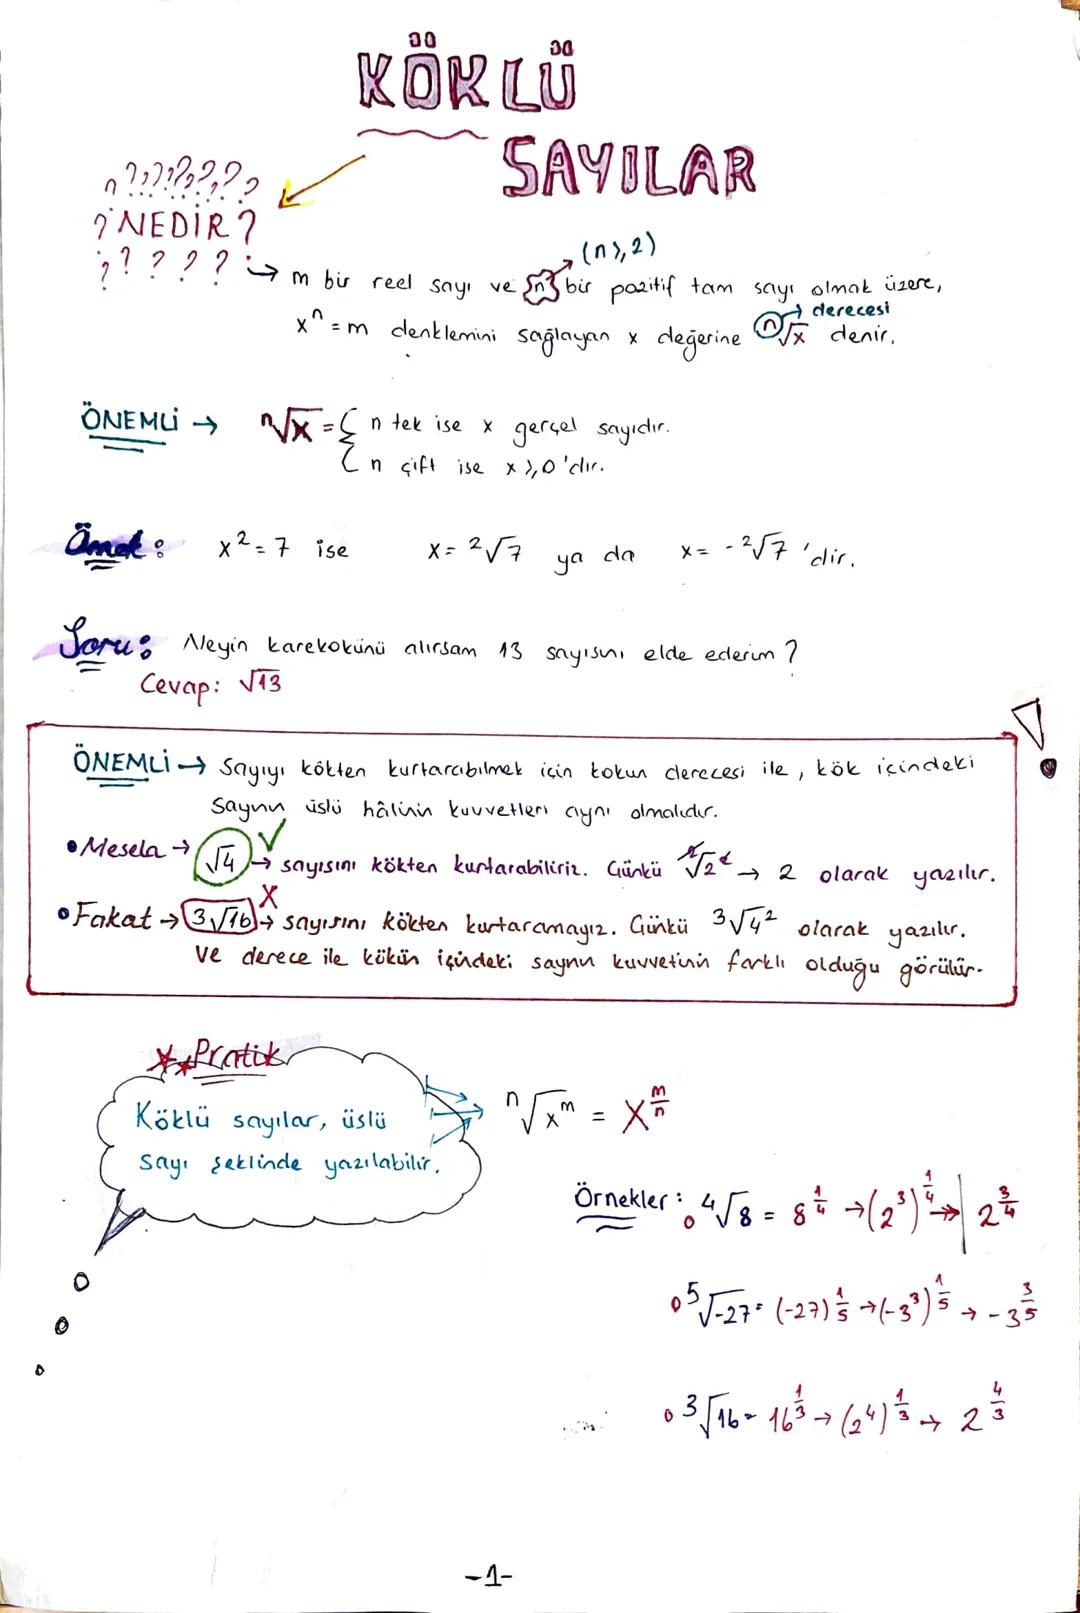 KÖKLÜ
SAYILAR
? ? ? ? ? ? ? ?
? NEDİR ?
? ? ? ? ? → m bir reel sayı ve n bir pozitif tam sayı olmak üzere,
(n≥2)
xⁿ = m denklemini sağlayan x değerine ⁿ√x denir.
derecesi
ÖNEMLİ → ⁿ√x = { n tek ise x gerçel sayıdır.
n çift ise x ≥ 0'dır.
Örnek: x² = 7 ise x = ²√7 ya da x = -²√7 'dir.
Soru: Neyin karekökünü alırsam 13 sayısını elde ederim ?
Cevap: √13
ÖNEMLİ → Sayıyı kökten kurtarabilmek için kökün derecesi ile, kök içindeki
sayının üslü hâlinin kuvvetleri aynı olmalıdır.
• Mesela → √4 ✓ → sayısını kökten kurtarabiliriz. Çünkü ²√2² → 2 olarak yazılır.
• Fakat → 3√16 X → sayısını kökten kurtaramayız. Çünkü ³√4² olarak yazılır.
Ve derece ile kökün içindeki sayının kuvvetinin farklı olduğu görülür.
!
**Pratik
Köklü sayılar, üslü
sayı şeklinde yazılabilir.
ⁿ√xᵐ = x^(m/n)
Örnekler: ⁴√8 = 8^(1/4) → (2³)^(1/4) → 2^(3/4)
⁵√-27 = (-27)^(1/5) → (-3³)^(1/5) → -3^(3/5)
³√16 = 16^(1/3) → (2⁴)^(1/3) → 2^(4/3)
-1-